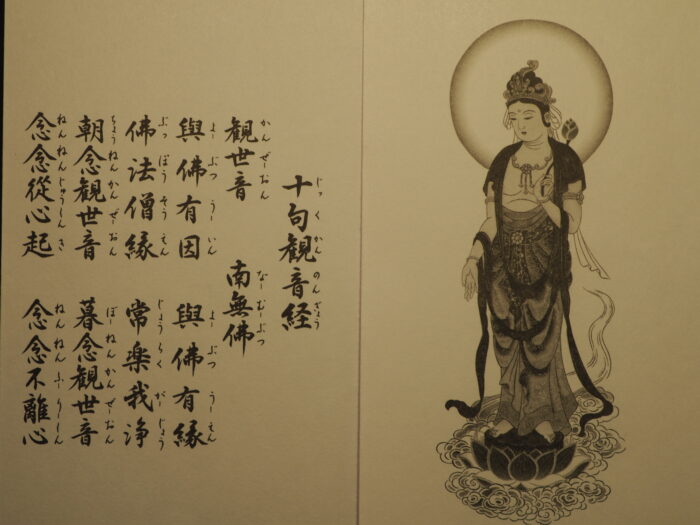 十句観音経
じっくかんのんぎょう
観世音 南無佛
かんぜーおん なーむーぶつ
與佛有因 與佛有縁
よーぶつうーいん よーぶつうーえん
佛法僧縁 常楽我浄
ぶっぽうそうえん じょうらくがーじょう
朝念観世音 暮念観世音
ちょうねんかんぜーおん ぼーねんかんぜーおん
念念從心起 念念不離心
ねんねんじゅうしんき ねんねんふーりーしん